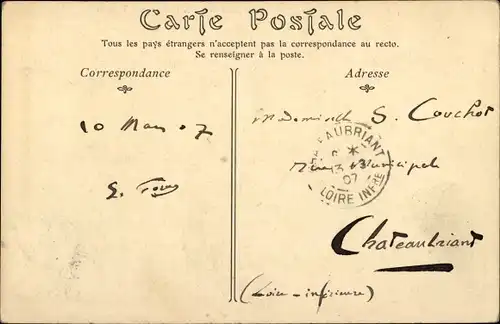 Carte Postale
Tous les pays étrangers n'acceptent pas la correspondance au recto.
Se renseigner à la poste.
Correspondance
Adresse
10 Mars 07
Mademoiselle S. Couchot
CHATEAUBRIANT
07
LOIRE INFRE
Municipale
Chateaubriant
(Loire-inférieure)